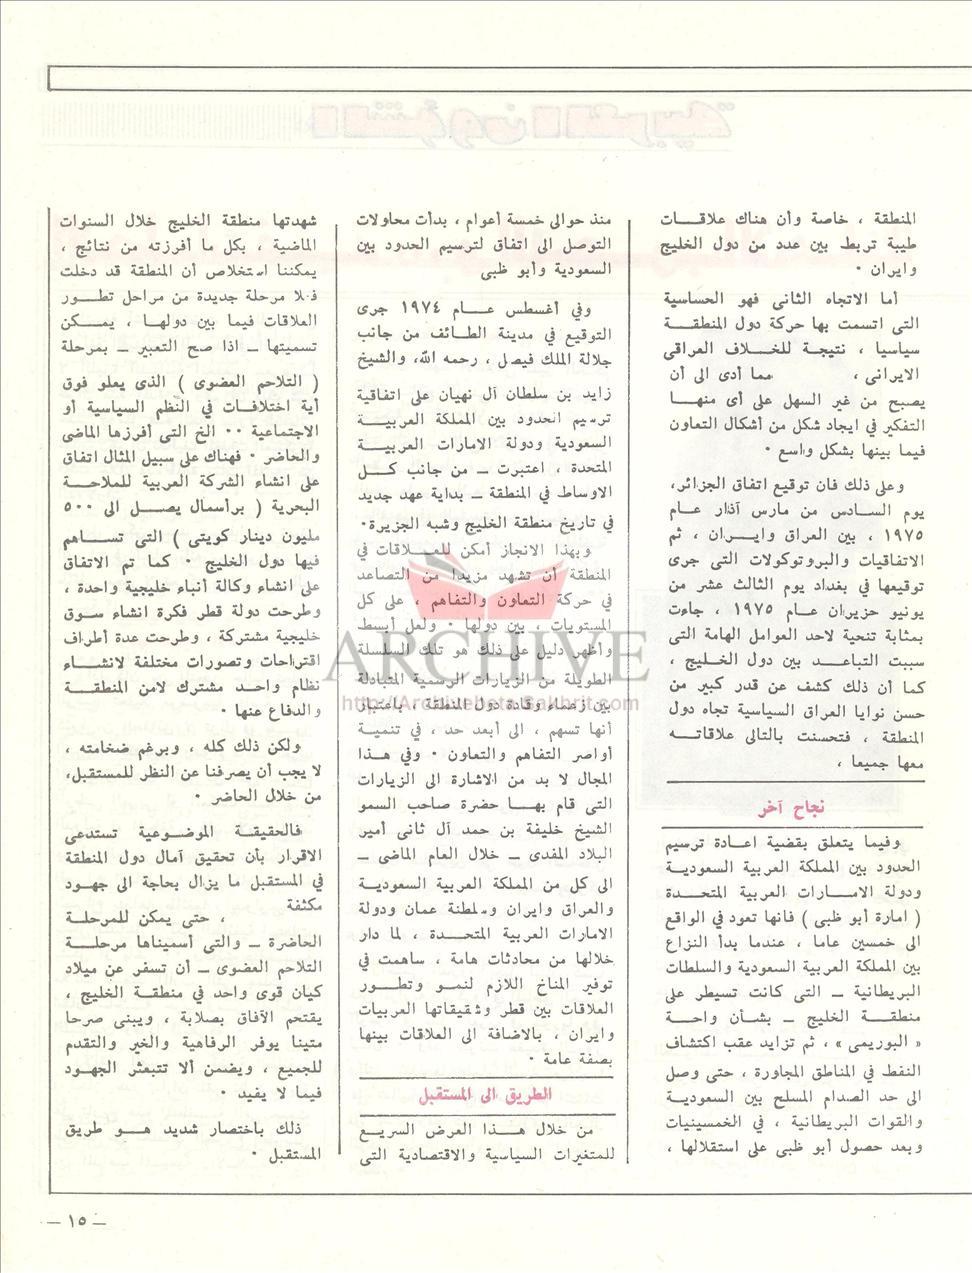 المنطقة ، خاصة وأن هناك علاقات
طيبة تربط بين عدد من دول الخليج
وايران ٠
أما الاتجاه الثانى فهو الحساسية
التى اتسمت بها حركة دول المنطقة
سياسيا ، نتيجة للخلاف العراقي
الايرانى ، مما أدى الى أن
يصبح من غير السهل على أى منها
التفكير في ايجاد شكل من أشكال التعاون
فيما بينها بشكل واسع ٠
وعلى ذلك فان توقيع اتفاق الجزائر،
يوم السادس من مارس آذار عام
١٩٧٥ ، بين العراق وايران ، ثم
الاتفاقيات والبروتوكولات التى جرى
توقيعها في بغداد يوم الثالث عشر من
يونيو حزيران عام ١٩٧٥ ، جاءت
بمثابة تنحية لاحد العوامل الهامة التى
سببت التباعد بين دول الخليج ،
كما أن ذلك كشف عن قدر كبير من
حسن نوايا العراق السياسية تجاه دول
المنطقة ، فتحسنت بالتالى علاقاته
معها جميعا ،
نجاح آخر
وفيما يتعلق بقضية اعادة ترسيم
الحدود بين المملكة العربية السعودية
ودولة الامارات العربية المتحدة
( امارة أبو ظبى ) فانها تعود في الواقع
الى خمسين عاما ، عندما بدأ النزاع
بين المملكة العربية السعودية والسلطات
البريطانية ــ التى كانت تسيطر على
منطقة الخليج ــ بشأن واحة
« البوريمى » ، ثم تزايد عقب اكتشاف
النفط في المناطق المجاورة ، حتى وصل
الى حد الصدام المسلح بين السعودية
والقوات البريطانية ، في الخمسينيات
وبعد حصول أبو ظبى على استقلالها ،
منذ حوالى خمسة أعوام ، بدأت محاولات
التوصل الى اتفاق لترسيم الحدود بين
السعودية وأبو ظبى
وفي أغسطس عام ١٩٧٤ جرى
التوقيع في مدينة الطائف من جانب
جلالة الملك فيصل ، رحمه الله، والشيخ
زايد بن سلطان آل نهيان على اتفاقية
ترسيم الحدود بين المملكة العربية
السعودية ودولة الامارات العربية
المتحدة ، اعتبرت ــ من جانب كل
الاوساط في المنطقة ــ بداية عهد جديد
في تاريخ منطقة الخليج وشبه الجزيرة٠
وبهذا الانجاز أمكن للعلاقات في
المنطقة أن تشهد مزيدا من التصاعد
في حركة التعاون والتفاهم ، على كل
المستويات ، بين دولها ٠ ولعل أبسط
وأظهر دليل على ذلك هو تلك السلسلة
الطويلة من الزيارات الرسمية المتبادلة
بين زعماء وقادة دول المنطقة ، باعتبار
أنها تسهم ، الى أبعد حد ، في تنمية
أواصر التفاهم والتعاون ٠ وفي هذا
المجال لا بد من الاشارة الى الزيارات
التى قام بها حضرة صاحب السمو
الشيخ خليفة بن حمد آل ثانى أمير
البلاد المفدى ــ خلال العام الماضى ــ
الى كل من المملكة العربية السعودية
والعراق وايران وسلطنة عمان ودولة
الامارات العربية المتحدة ، لما دار
خلالها من محادثات هامة ، ساهمت في
توفير المناخ اللازم لنمو وتطور
العلاقات بين قطر وشقيقاتها العربيات
وايران ، بالاضافة الى العلاقات بينها
بصفة عامة ٠
الطريق الى المستقبل
من خلال هذا العرض السريع
للمتغيرات السياسية والاقتصادية التى
شهدتها منطقة الخليج خلال السنوات
الماضية ، بكل ما أفرزته من نتائج ،
يمكننا استخلاص أن المنطقة قد دخلت
فعلا مرحلة جديدة من مراحل تطور
العلاقات فيما بين دولها ، يمكن
تسميتها ــ اذا صح التعبير ــ بمرحلة
( التلاحم العضوى ) الذى يعلو فوق
أية اختلافات في النظم السياسية أو
الاجتماعية ٠٠ الخ التى أفرزها الماضى
والحاضر ٠ فهناك على سبيل المثال اتفاق
على انشاء الشركة العربية للملاحة
البحرية ( برأسمال يصل الى ٥٠٠
مليون دينار كويتى ) التى تساهم
فيها دول الخليج ٠ كما تم الاتفاق
على انشاء وكالة أنباء خليجية واحدة ،
وطرحت دولة قطر فكرة انشاء سوق
خليجية مشتركة ، وطرحت عدة أطراف
اقتراحات وتصورات مختلفة لانشاء
نظام واحد مشترك لامن المنطقة
والدفاع عنها ٠
ولكن ذلك كله ، وبرغم ضخامته ،
لا يجب أن يصرفنا عن النظر للمستقبل،
من خلال الحاضر ٠
فالحقيقة الموضوعية تستدعى
الاقرار بأن تحقيق آمال دول المنطقة
في المستقبل ما يزال بحاجة الى جهود
مكثفة ، حتى يمكن للمرحلة
الحاضرة ــ والتى أسميناها مرحلة
التلاحم العضوى ــ أن تسفر عن ميلاد
كيان قوى واحد في منطقة الخليج ،
يقتحم الآفاق بصلابة ، ويبنى صرحا
متينا يوفر الرفاهية والخير والتقدم
للجميع ، ويضمن ألا تتبعثر الجهود
فيما لا يفيد ٠
ذلك باختصار شديد هو طريق
المستقبل ٠
ــ ١٥ ــ
ARCHIVE
http://Archivebeta.Sakhrit.com